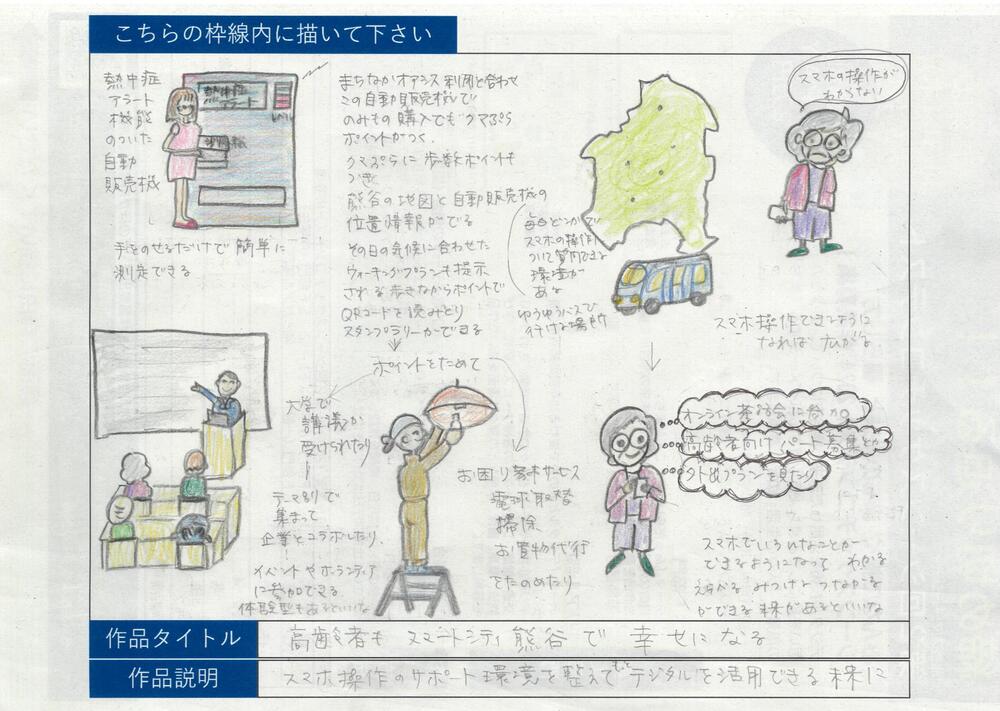 こちらの枠線内に描いて下さい
熱中症
アラート
機能
のついた
自動
販売機
熱中症
アラート
手をのせるだけで簡単に
測定できる
まちなかオアシス利用と合わせ
この自動販売機で
のみもの購入でもクマぷら
ポイントがつく
クマぷらに歩数ポイントも
つき
熊谷の地図と自動販売機の
位置情報がでる
その日の気候に合わせた
ウォーキングプランも提示
される歩きながらポイントで
QRコードを読みとり
スタンプラリーができる
毎日どこかで
スマホの操作に
ついて質問できる
環境が
ある
ゆうゆうバスで
行ける場所
スマホの操作が
わからない
スマホ操作できるように
なれば広がる
ポイントをためて
大学で
講議が
受けられたり
テーマ別で
集まって
企業とコラボしたり
イベントやボランティア
に参加できる
体験型もあるといいな
お困り事サービス
電球取替
掃除
お買物代行
をたのめたり
オンライン茶話会に参加
高齢者向けパート募集とか
夕ご飯プランを見たり
スマホでいろんなことが
できるようになって わかる
えらべる みつける つながる
ができる未来があるといいな
作品タイトル
高齢者もスマートシティ熊谷で 幸せになる
作品説明
スマホ操作のサポート環境を整えてもっとデジタルを活用できる未来に